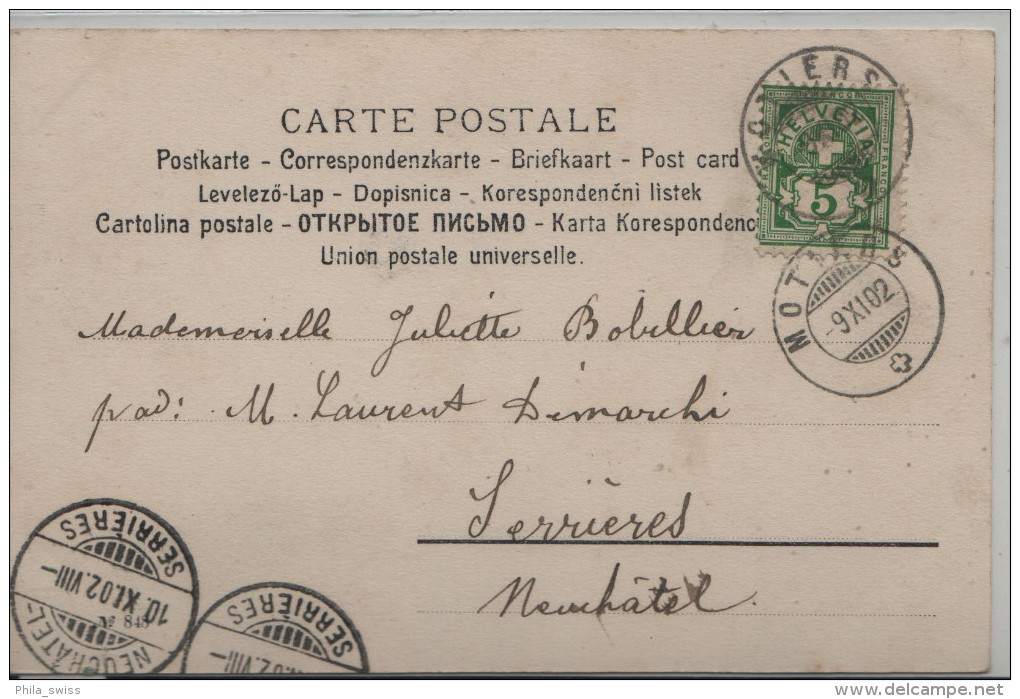 CARTE POSTALE
Postkarte - Correspondenzkarte - Briefkaart - Post card
Levelező-Lap - Dopisnica - Korespondenčni listek
Cartolina postale - ОТКРЫТОЕ ПИСЬМО - Karta Korespondenc
Union postale universelle.
HELVETIA
FRANCO
5
MOTIERS
-9 XI 02
Mademoiselle Juliette Bobillier
M. Laurent Dimarchi
Serrières
Neuchâtel.
SERRIÈRES
10. XI. 02. VIII-
№ 844
NEUCHÂTEL
SERRIÈRES
XI. 02. VIII-
Phila_swiss
www.delcampe.net